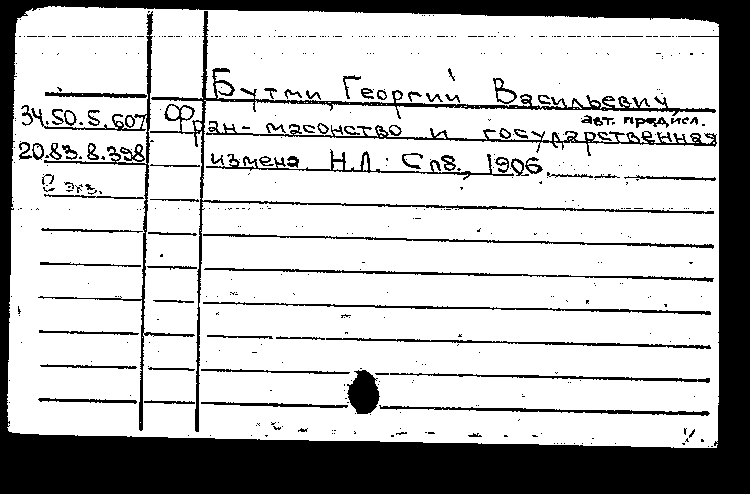 Бутми, Георгий Васильевич,
авт. предисл.
34.50.5.607 Фран-масонство и государственная
20.83.8.398 измена Н.Л. Спб., 1906.
2 экз.